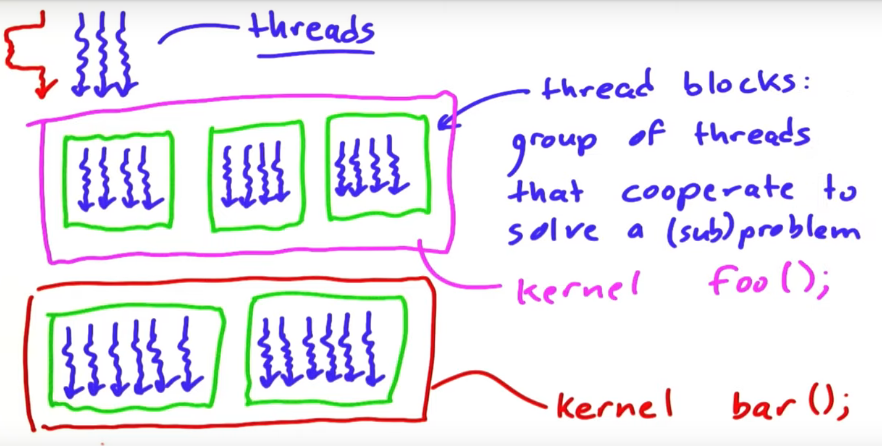 threads
thread blocks:
group of threads
that cooperate to
solve a (sub)problem
kernel foo();
kernel bar();